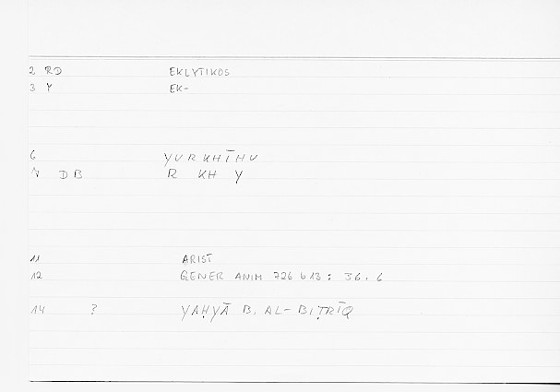 2 RD EKLYTIKOS
3 Y EK-
6 YURKHĪHU
N DB R KH Y
11 ARIST
12 GENER ANIM 726 b 13 : 36.6
14 ? YAḤYĀ B. AL-BIṬRĪQ